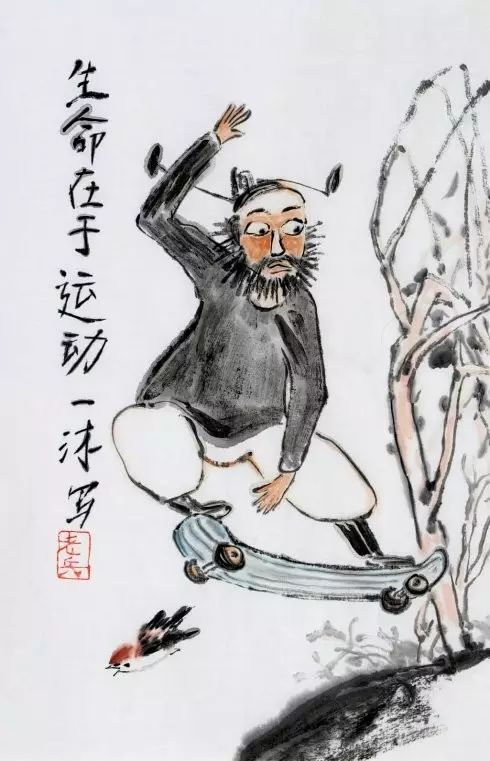 生命在于运动一沐写
老兵